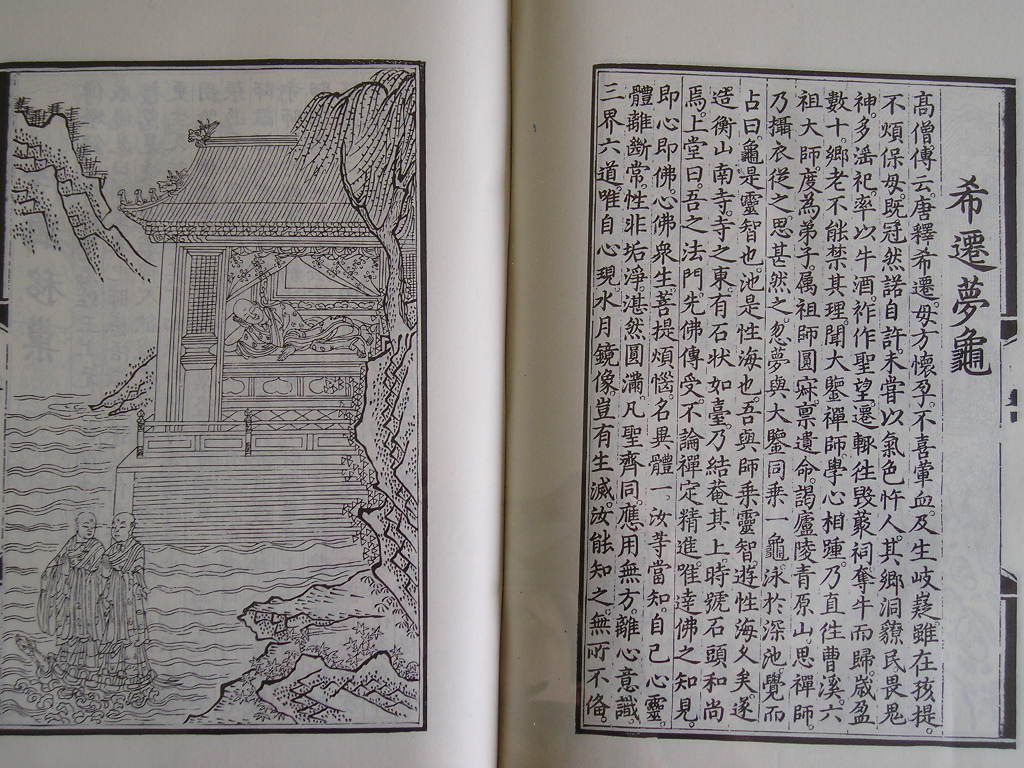 希遷夢龜
高僧傳云。唐釋希遷。母方懷孕。不喜葷血。及生岐嶷。雖在孩提。
不煩保母。既冠然諾自許。未嘗以氣色忤人。其鄉洞獠民畏鬼
神。多淫祀。率以牛酒。祚作聖望。遷輒往毀叢祠。奪牛而歸。歲盈
數十。鄉老不能禁其理。聞大鑒禪師學心相踵。乃直往曹溪。六
祖大師。度為弟子。属祖師圓寂。禀遺命。謁廬陵青原山思禪師。
乃攝衣從之。思甚然之。忽夢與大鑒同乘一龜。泳於深池。覺而
占曰。龜是靈智也。池是性海也。吾與師乘靈智遊性海久矣。遂
造衡山南寺。寺之東有石狀如臺。乃結菴其上。時號石頭和尚
焉。上堂曰。吾之法門。先佛傳受。不論禪定精進。唯達佛之知見。
即心即佛。心佛眾生。菩提煩惱。名異體一。汝等當知。自己心靈。
體離斷常。性非垢淨。湛然圓滿。凡聖齊同。應用無方。離心意識。
三界六道。唯自心現。水月鏡像。豈有生滅。汝能知之。無所不俻。